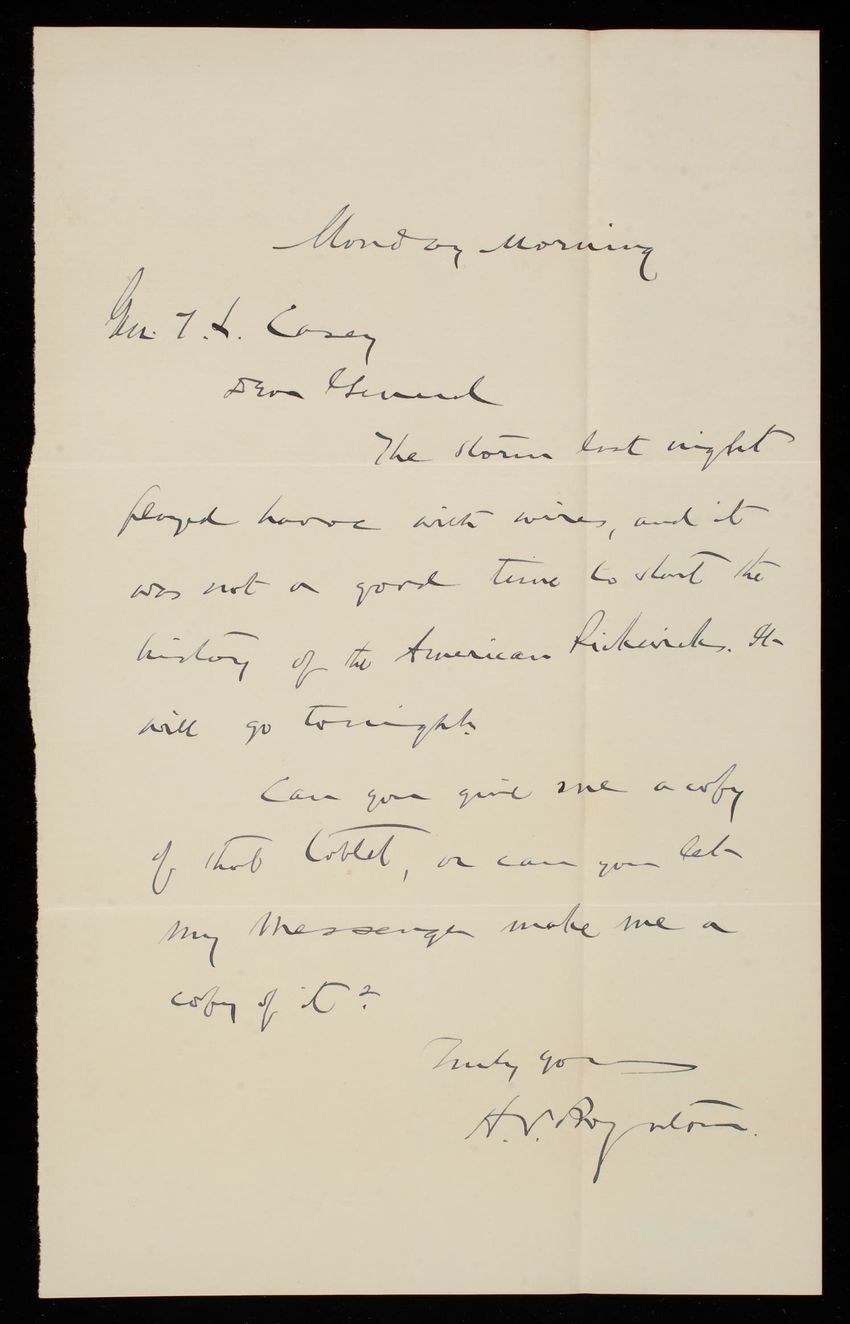 Monday Morning
Gen. T. L. Casey
Dear General
The storm last night
played havoc with wires, and it
was not a good time to start the
history of the American Pickwicks. It
will go tonight.
Can you give me a copy
of that tablet, or can you let
my messenger make me a
copy of it?
Truly yours
H. V. Boynton.